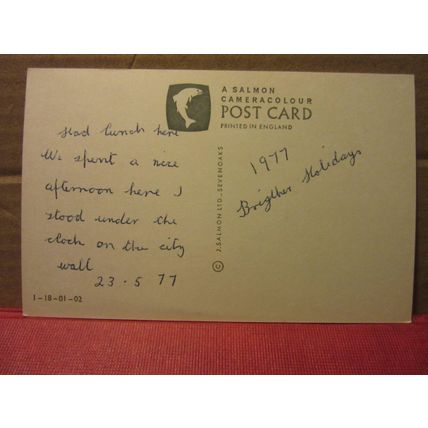 A SALMON
CAMERACOLOUR
POST CARD
PRINTED IN ENGLAND
Had lunch here
We spent a nice
afternoon here I
stood under the
clock on the city
wall
23.5 77
1-18-01-02
J. SALMON LTD., SEVENOAKS
©
1977
Brigther Holidays